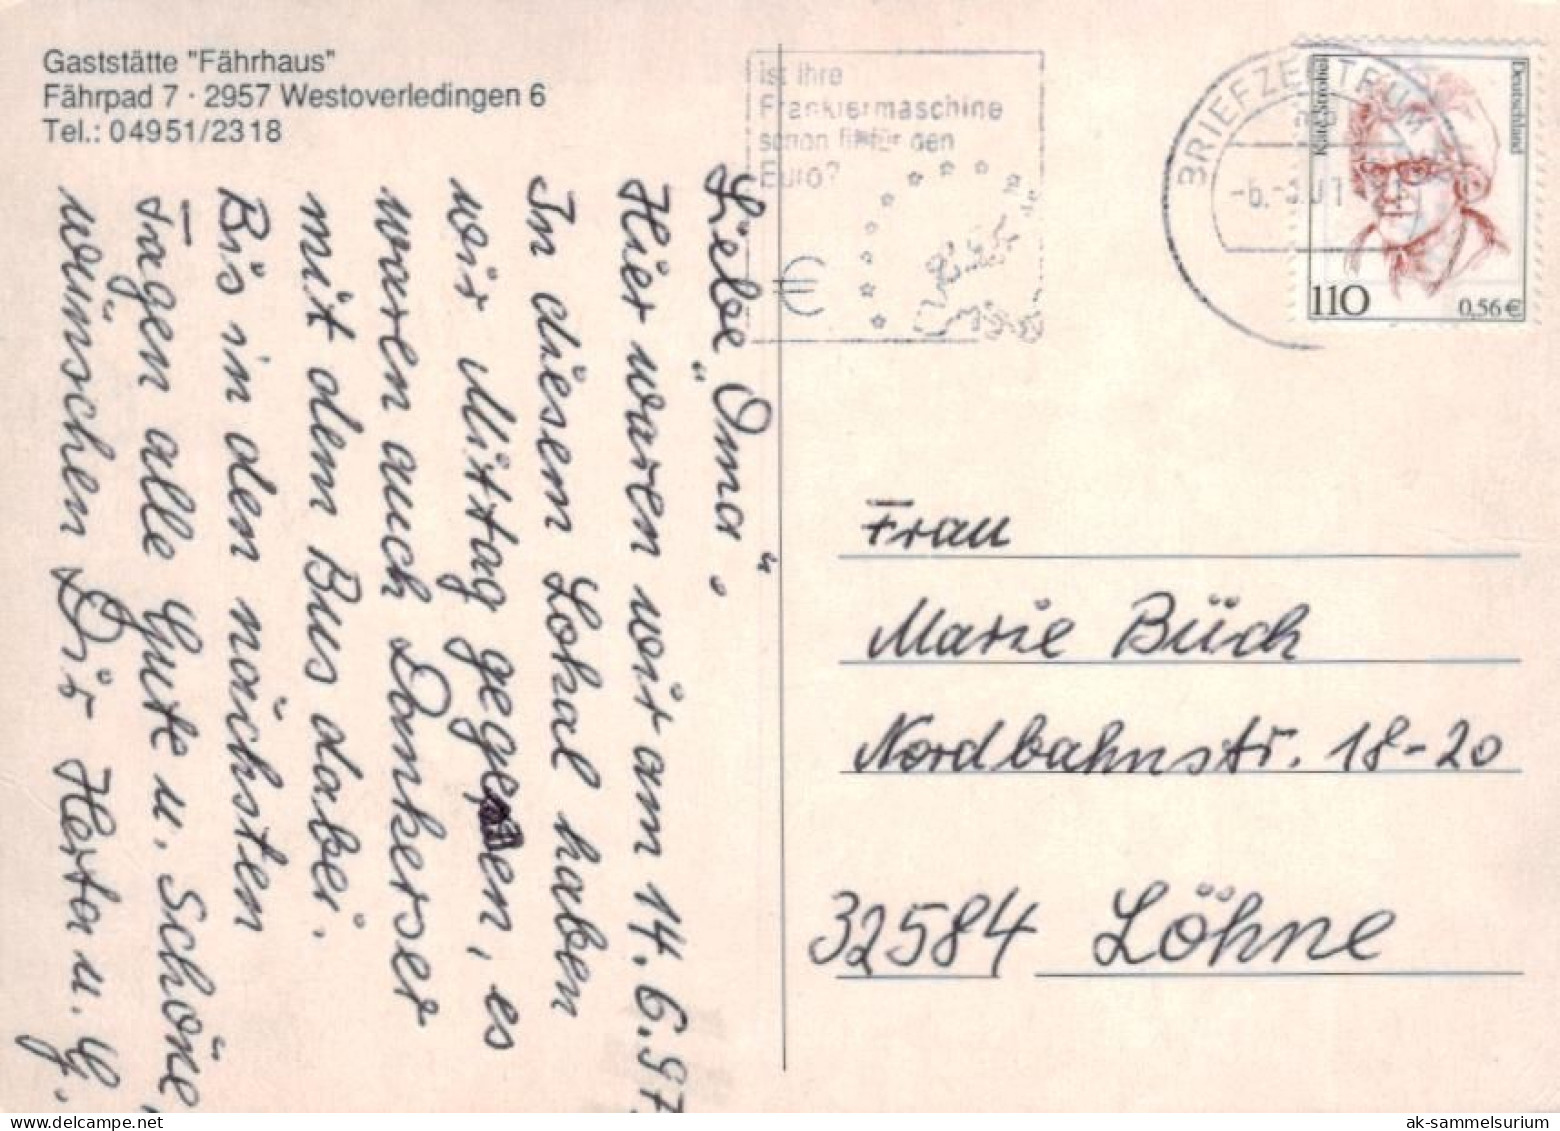 Gaststätte "Fährhaus"
Fährpad 7 · 2957 Westoverledingen 6
Tel.: 04951/2318
Liebe „Oma“,
Hier waren wir am 14.6.97,
In diesem Lokal haben
wir Mittag gegessen, es
waren auch Dankerser
mit dem Bus dabei.
Bis in den nächsten
Tagen alle Gute u. Schöne,
wünschen Dir Herta u. G.
ist Ihre
Frankiermaschine
schon fit für den
Euro?
€
BRIEFZENTRUM
-6.-
01
Käte Strobel
Deutschland
110
0,56€
Frau
Marie Büch
Nordbahnstr. 18-20
32584 Löhne
ak-sammelsurium